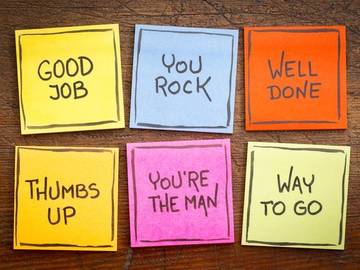 GOOD
JOB
YOU
ROCK
WELL
DONE
THUMBS
UP
YOU'RE
THE MAN
WAY
TO GO